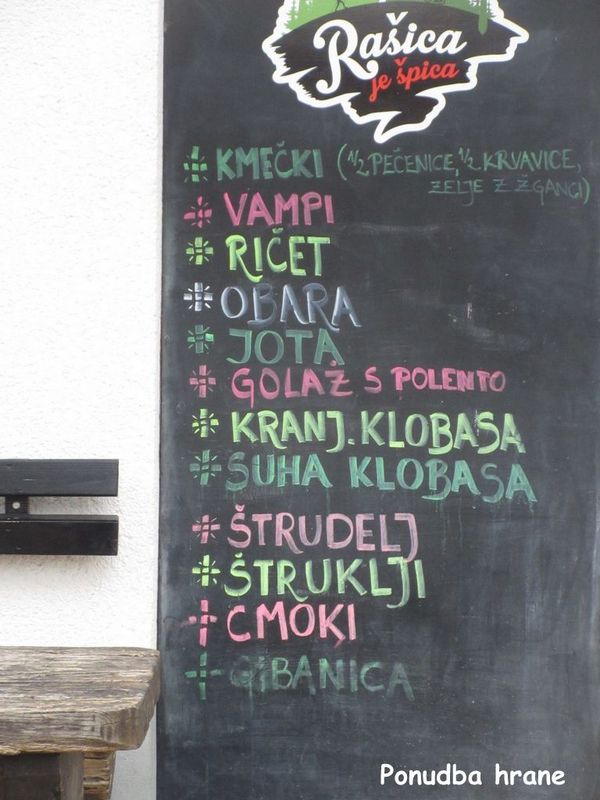 Rašica
je špica
KMEČKI (1/2 PEČENICE, 1/2 KRVAVICE,
ZELJE Z ŽGANCI)
VAMPI
RIČET
OBARA
JOTA
GOLAŽ S POLENTO
KRANJ. KLOBASA
SUHA KLOBASA
ŠTRUDELJ
ŠTRUKLJI
CMOKI
GIBANICA
Ponudba hrane